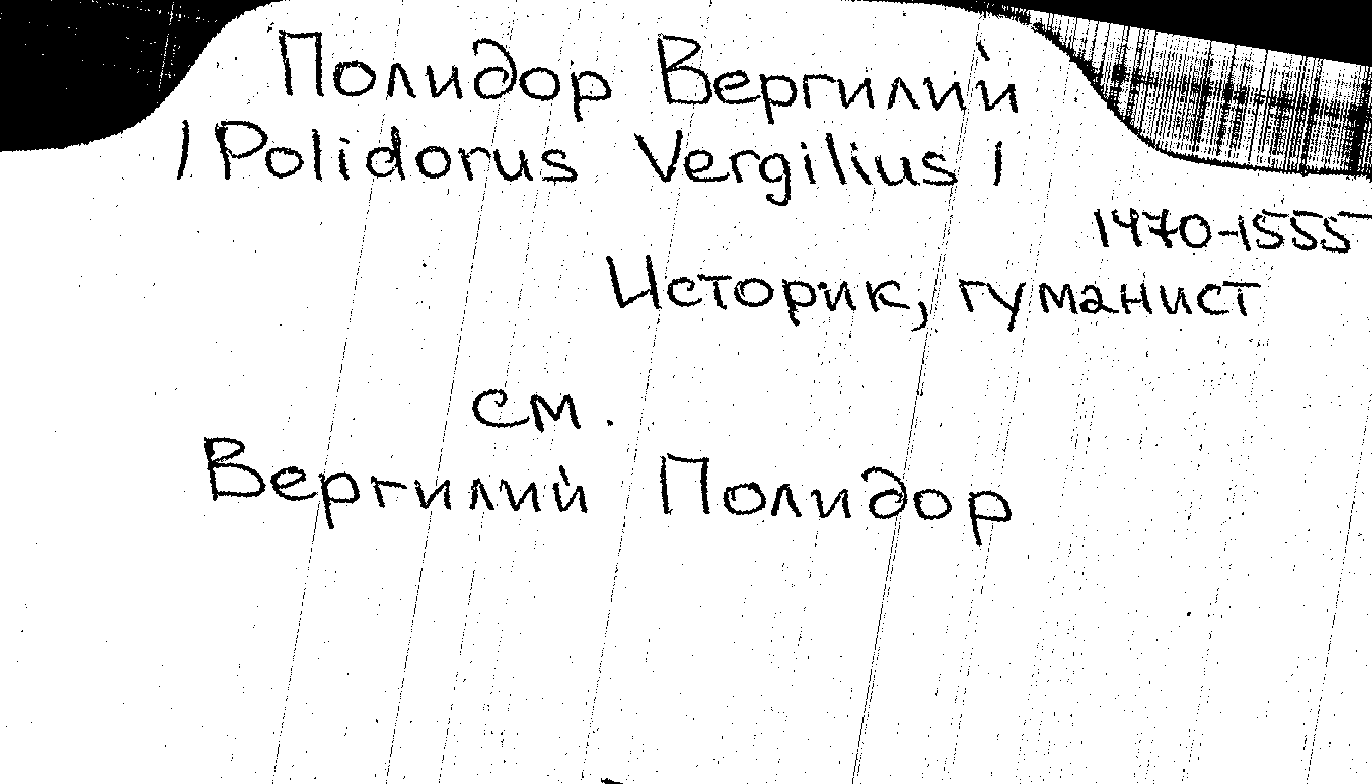 Полидор Вергилий
/Polidorus Vergilius/
1470-1555
Историк, гуманист
см.
Вергилий Полидор